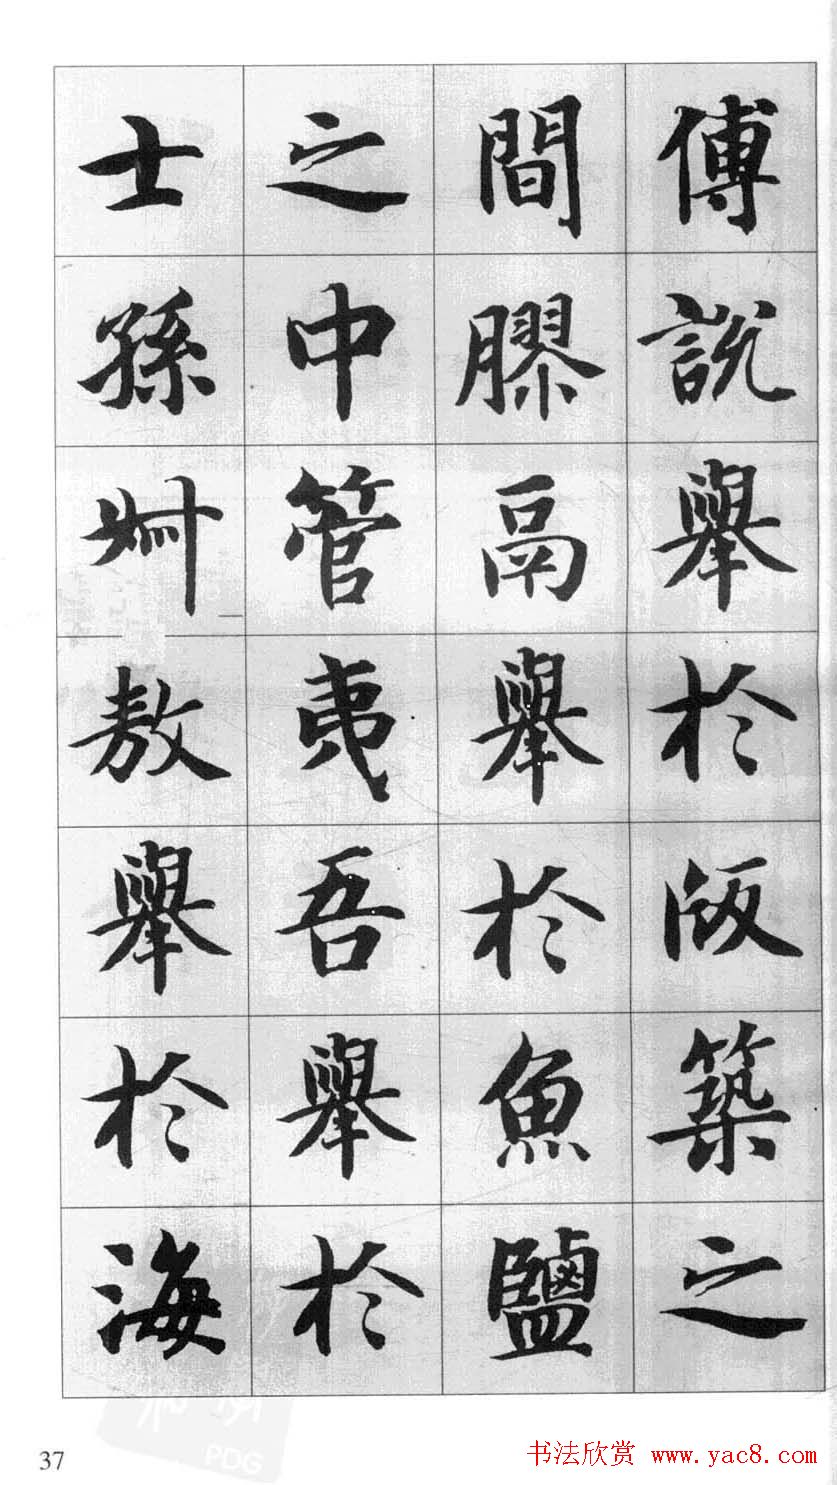 傅說舉於版築之
間膠鬲舉於魚鹽
之中管夷吾舉於
士孫叔敖舉於海
37
书法欣赏 www.yac8.com
PDG